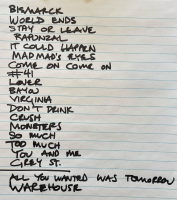 BISMARCK
WORLD ENDS
STAY OR LEAVE
RAPUNZAL
IT COULD HAPPEN
MAD MAD'S EYES
COME ON COME ON
#41
LOVER
BAYOU
VIRGINIA
DON'T DRINK
CRUSH
MONSTERS
SO MUCH
TOO MUCH
YOU AND ME
GREY ST.
ALL YOU WANTED WAS TOMORROW
WAREHOUSE